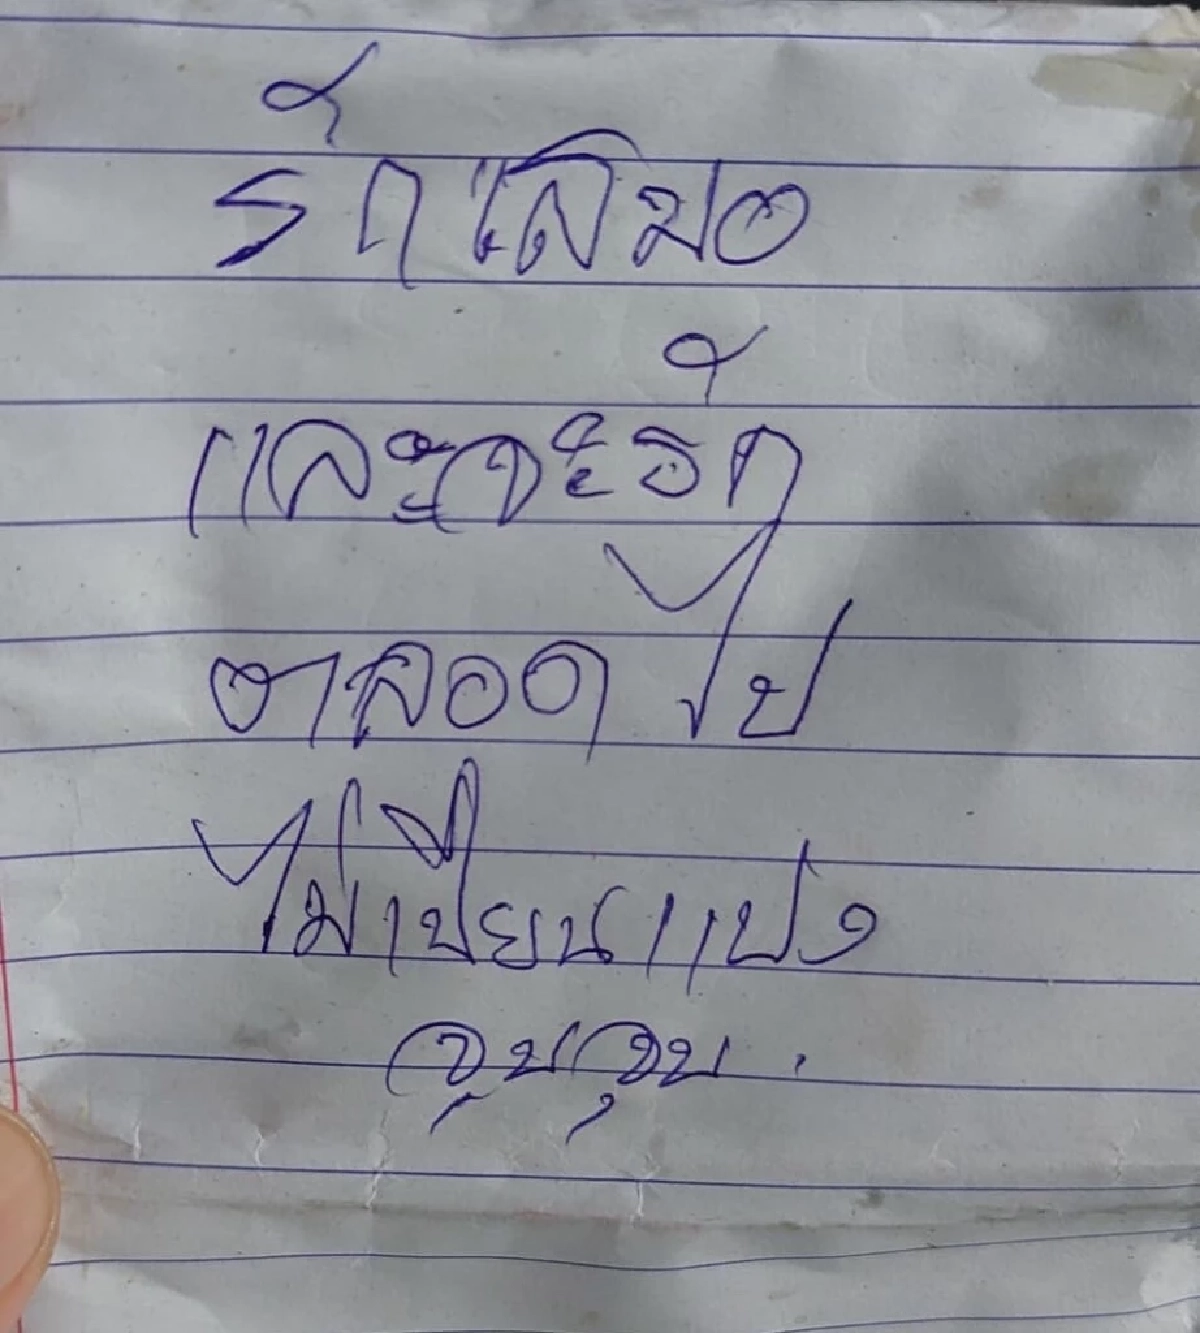 รักเสมอ
และจะรัก
ตลอดไป
ไม่เปียนแปง
จุบจุบ